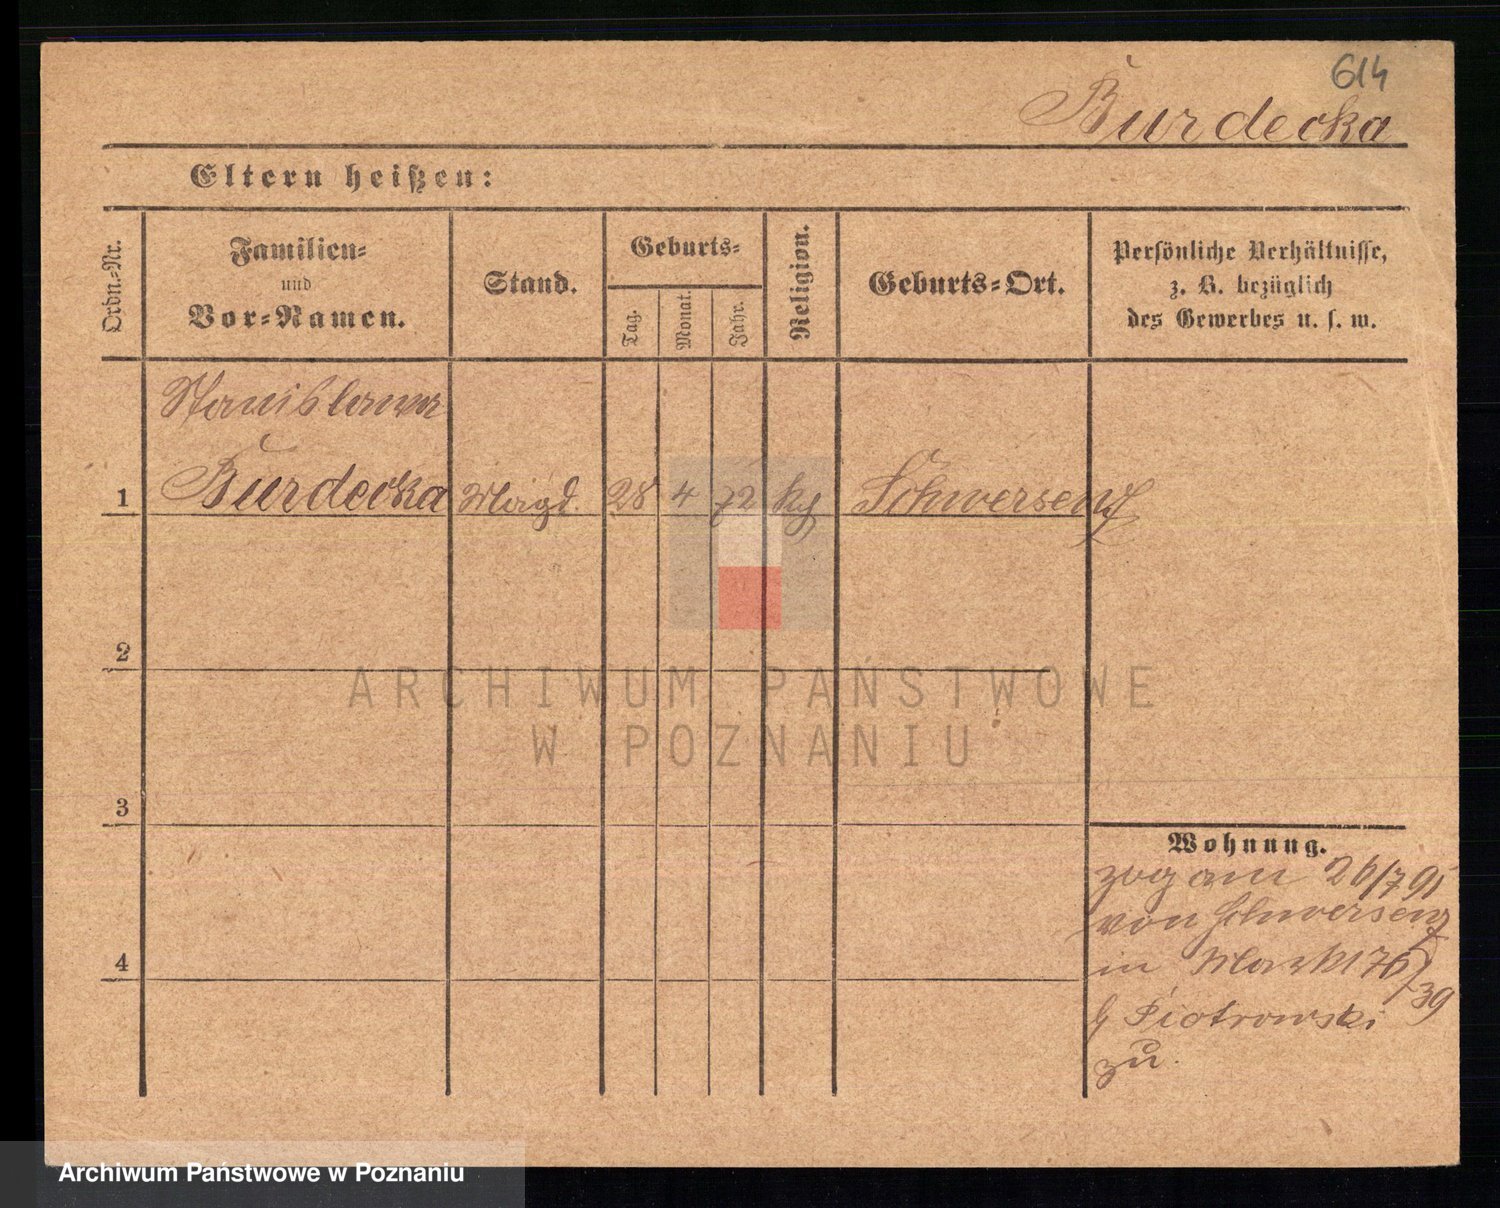 614
Burdecka
Eltern heißen:
Ordn.-Nr.
Familien-
und
Vor-Namen.
Stand.
Geburts-
Tag.
Monat.
Jahr.
Religion.
Geburts-Ort.
Persönliche Verhältnisse,
z. B. bezüglich
des Gewerbes u. s. w.
Stanislawa
1 Burdecka Magd. 28 4 72 kg Schwersenz
2
3
4
Wohnung.
zog am 26/7 91
von Schwersenz
in Markt 76/39
b Piotrowski
zu.
ARCHIWUM PAŃSTWOWE
W POZNANIU
Archiwum Państwowe w Poznaniu